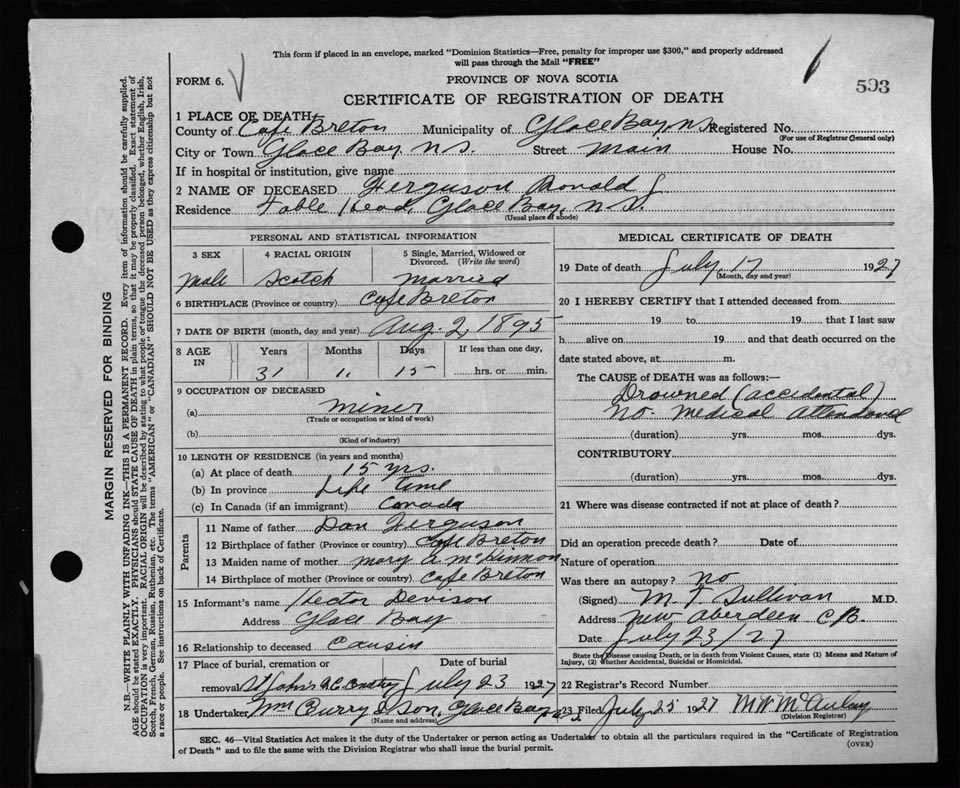 This form if placed in an envelope, marked "Dominion Statistics—Free, penalty for improper use $300," and properly addressed
will pass through the Mail "FREE"
FORM 6.
PROVINCE OF NOVA SCOTIA
593
CERTIFICATE OF REGISTRATION OF DEATH
1 PLACE OF DEATH
County of Cape Breton Municipality of Glace Bay, N.S. Registered No.
(For use of Registrar General only)
City or Town Glace Bay N.S. Street Main House No.
If in hospital or institution, give name
2 NAME OF DECEASED Ferguson Ronald J
Residence Table Head, Glace Bay, N.S.
(Usual place of abode)
PERSONAL AND STATISTICAL INFORMATION
3 SEX 4 RACIAL ORIGIN 5 Single, Married, Widowed or Divorced. (Write the word)
Male Scotch Married
6 BIRTHPLACE (Province or country) Cape Breton
7 DATE OF BIRTH (month, day and year) Aug. 2, 1895
8 AGE IN Years Months Days If less than one day,
31 11 15 hrs. or min.
9 OCCUPATION OF DECEASED
(a) Miner
(Trade or occupation or kind of work)
(b)
(Kind of industry)
10 LENGTH OF RESIDENCE (in years and months)
(a) At place of death 15 yrs.
(b) In province Life time
(c) In Canada (if an immigrant) Canada
Parents
11 Name of father Dan Ferguson
12 Birthplace of father (Province or country) Cape Breton
13 Maiden name of mother Mary A McKinnon
14 Birthplace of mother (Province or country) Cape Breton
15 Informant's name Hector Devison
Address Glace Bay
16 Relationship to deceased Causin
17 Place of burial, cremation or Date of burial
removal St John's R.C. July 23 1927
18 Undertaker Wm Curry & Son, Glace Bay N.S.
(Name and address)
MEDICAL CERTIFICATE OF DEATH
19 Date of death July, 17 1927
(Month, day and year)
20 I HEREBY CERTIFY that I attended deceased from
19 to 19 that I last saw
h alive on 19 and that death occurred on the
date stated above, at m.
The CAUSE OF DEATH was as follows:—
Drowned (accidental)
No. Medical Attendance
(duration) yrs. mos. dys.
CONTRIBUTORY
(duration) yrs. mos. dys.
21 Where was disease contracted if not at place of death?
Did an operation precede death? Date of
Nature of operation
Was there an autopsy? no
(Signed) M T Sullivan M.D.
Address New Aberdeen C B
Date July 23/27
State the Disease causing Death, or in death from Violent Causes, state (1) Means and Nature of
Injury, (2) Whether Accidental, Suicidal or Homicidal.
22 Registrar's Record Number
23 Filed July 25 1927 M.W. McAulay
(Division Registrar)
SEC. 46—Vital Statistics Act makes it the duty of the Undertaker or person acting as Undertaker to obtain all the particulars required in the "Certificate of Registration
of Death" and to file the same with the Division Registrar who shall issue the burial permit.
(OVER)
MARGIN RESERVED FOR BINDING
N.B.—WRITE PLAINLY WITH UNFADING INK—THIS IS A PERMANENT RECORD. Every item of information should be carefully supplied.
AGE should be stated EXACTLY. PHYSICIANS should STATE CAUSE OF DEATH in plain terms, so that it may be properly classified. Exact statement of
OCCUPATION is very important. RACIAL ORIGIN will be described by stating to what people or tongue the deceased person belonged, whether English, Irish,
Scotch, French, German, Russian, Ruthenian, etc. The terms "AMERICAN" or "CANADIAN" SHOULD NOT BE USED as they express citizenship but not
a race or people. See instructions on back of Certificate.